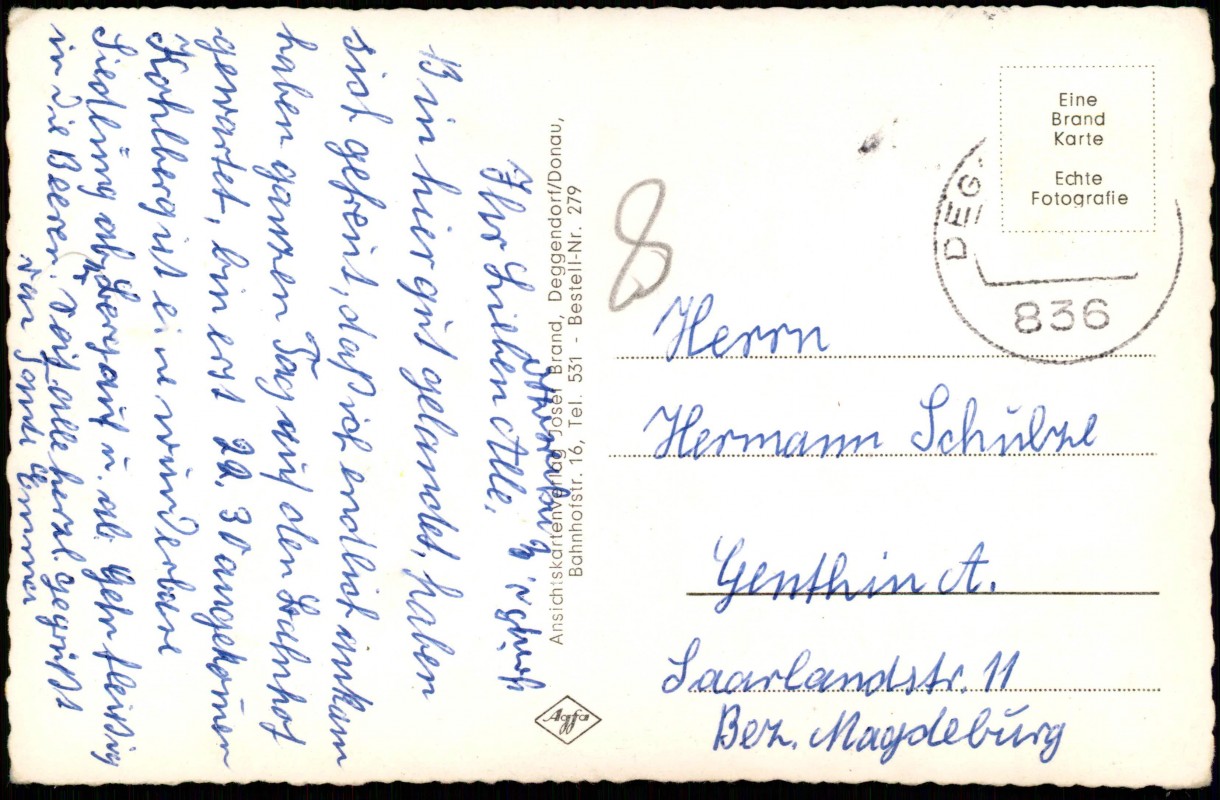 Ihr Lieben Alle,
Bin hier gut gelandet, haben
sich gefreut, daß ich endlich ankam
haben ganzen Tag auf den Bahnhof
gewartet, bin erst 22.30 angekom̅en
Kohlberg ist eine wunderbare
Siedlung bergauf u. ab. Gehn fleißig
in die Beeren. Seid alle herzl. gegrüßt
von Tante Emma
Ansichtskartenverlag Josef Brand, Deggendorf/Donau,
Bahnhofstr. 16, Tel. 531 - Bestell-Nr. 279
Agfa
Eine
Brand
Karte
Echte
Fotografie
DEG
836
8
Herrn
Hermann Schulze
Genthin A.
Saarlandstr. 11
Bez. Magdeburg